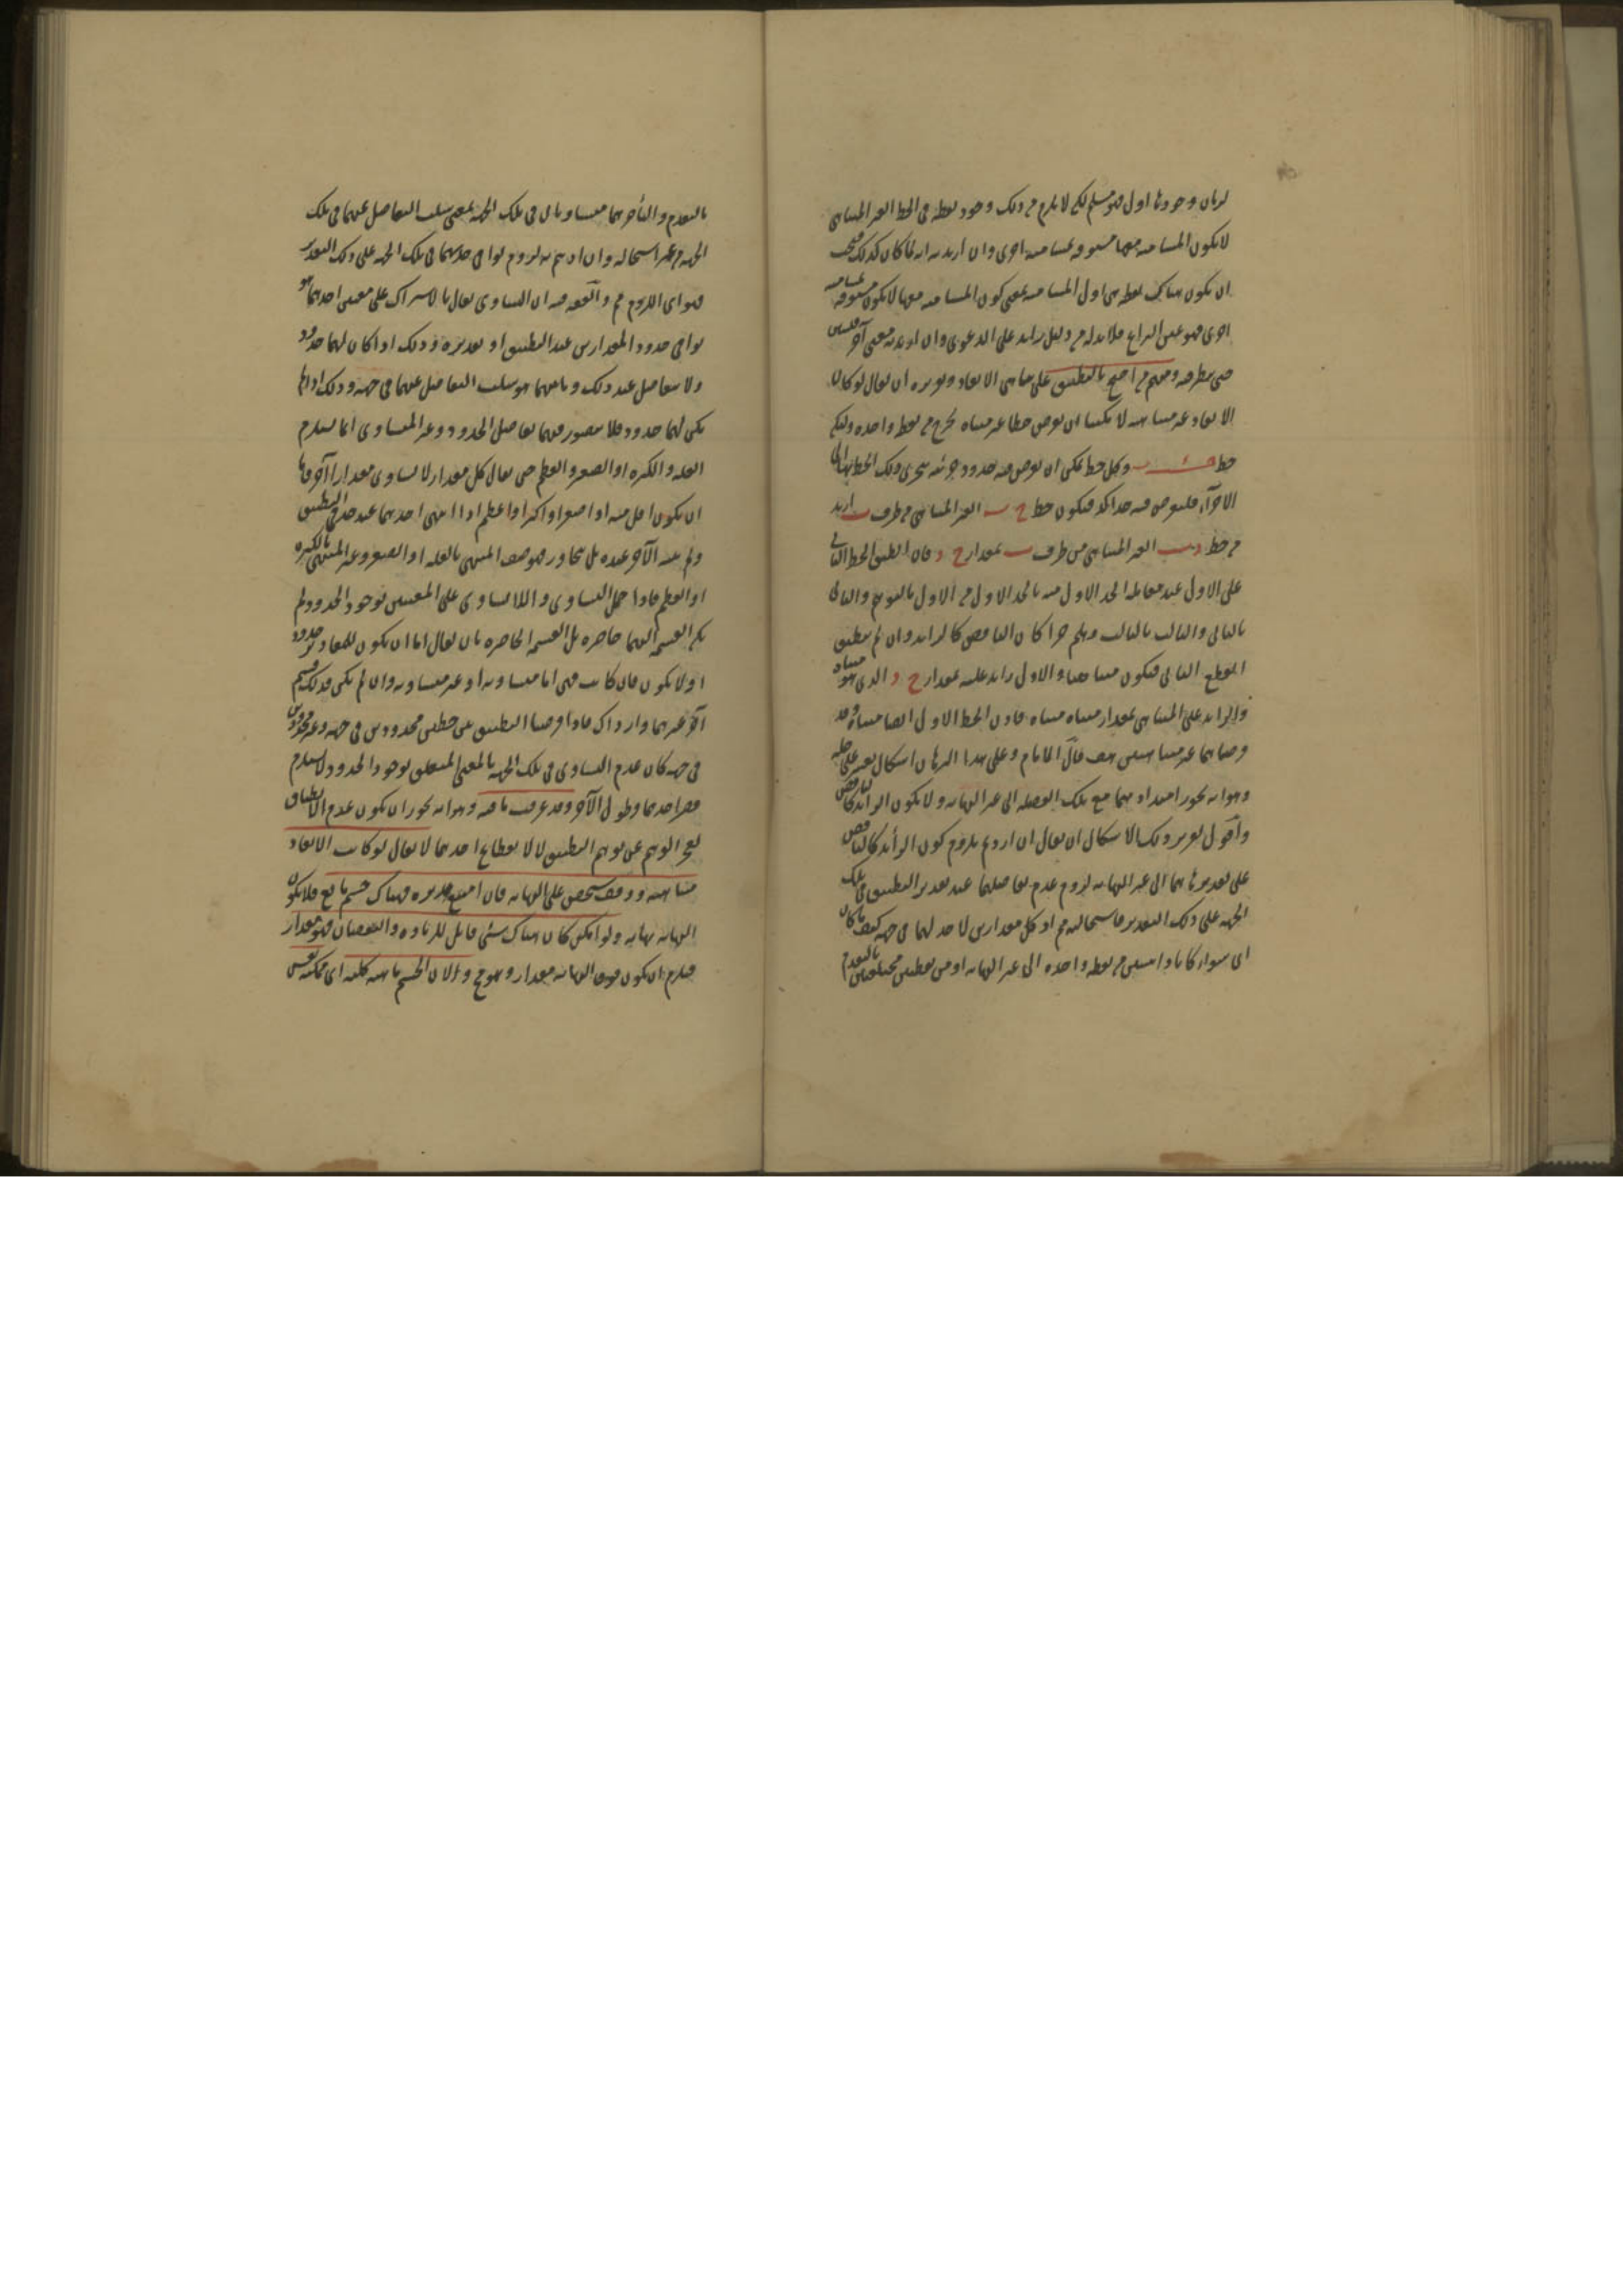 لزمان وجودها اول فهو مسلم لكن لا يلزم من ذلك وجود نقطة فى الخط الغير المتناهى
لا يكون المسامتة معها مسبوقة بمسامتة اخرى وان اريد به انه لما كان كذلك فيجب
ان يكون هناك نقطة هى اول المسامتة بمعنى كون المسامتة معها لا يكون مسبوقة بمسامتة
اخرى فهو عين النزاع فلابد له من دليل زايد على الدعوى وان اريد به معنى آخر فليبين
حتى ينظر فيه ومنهم من احتج بالتطبيق على تناهى الابعاد وتقريره ان يقال لو كان
الابعاد غير متناهية لامكننا ان نفرض خطا غير متناه يخرج من نقطة واحدة وليكن
خط ب وكل خط يمكن ان يفرض فيه حدود جزئية يتجزى ذلك الخط بها الى
الاجزاء فلنفرض فيه حدا آخر فيكون خط ح ب الغير المتناهى من طرف ب ازيد
من خط د ب الغير المتناهى من طرف ب بمقدار ح د فان انطبق الخط الثانى
على الاول عند مقابلة الحد الاول منه بالحد الاول من الاول بالتوهم والثانى
بالثانى والثالث بالثالث وهلم جرا كان الناقص كالزايد وان لم ينطبق
انقطع الثانى فيكون متناهيا والاول زايد عليه بمقدار ح د الذى هو متناه
والزايد على المتناهى بمقدار متناه متناه فاذن الخط الاول ايضا متناه وقد
فرضناهما غير متناهيين هف قال الامام وعلى هذا البرهان اشكال يعسر على حله
وهو انه يجوز امتدادهما مع تلك الفضلة الى غير النهاية ولا يكون الزائد كالناقص
واقول تقرير ذلك الاشكال ان يقال ان اردتم بلزوم كون الزائد كالناقص
على تقدير ذهابهما الى غير النهاية لزوم عدم تفاضلهما عند تقدير التطبيق فى تلك
الجهة على ذلك التقدير فاستحالته مم اذ كل مقدارين لا حد لهما فى جهة كيف ما كان
اى سواء كانا وابتدئين من نقطة واحدة الى غير النهاية او من نقطتين مختلفتين بالتقدم
بالتقدم والتأخر هما متساويان فى تلك الجهة بمعنى سلب التفاضل عنهما فى تلك
الجهة من غير استحالة وان اردتم به لزوم توافى حديهما فى تلك الجهة على ذلك التقدير
فهو اى اللزوم مم والفقه فيه ان التساوى يقال بالاشتراك على معنيين احدهما هو
توافى حدود المقدارين عند التطبيق او تقديره وذلك اذا كان لهما حدود
ولا تفاضل عند ذلك وثانيهما هو سلب التفاضل عنهما فى جهة وذلك اذا لم
يكن لهما حدود فلا يتصور فيهما تفاضل الحدود وغير المتساوى انما يلزم
القلة والكثرة او الصغر والعظم حتى يقال كل مقدار لا يساوى مقدارا آخر فاما
ان يكون اقل منه او اصغر او اكثر او اعظم اذا انتهى احدهما عند حد فى التطبيق
ولم ينته الآخر عنده بل تجاوز فيوصف المنتهى بالقلة او الصغر وغير المنتهى بالكثرة
او العظم فاذا حمل التساوى واللاتساوى على المعنيين بوجود الحدود لم
يكن القسمة اليهما حاصرة بل القسمة الحاصرة بان يقال اما ان يكون للمقادير حدود
او لا يكون فان كانت فهى اما متساوية او غير متساوية وان لم يكن فذلك قسم
آخر غيرهما واذا فرضنا التطبيق بين خطين محدودين فى جهة وغير محدودين
فى جهة كان عدم التساوى فى تلك الجهة بالمعنى المتعلق بوجود الحدود لا يستلزم
قصر احدهما وطول الآخر وقد عرفت ما فيه وهو انه يجوز ان يكون عدم الانطباق
لعجز الوهم عن توهم التطبيق لا لانقطاع احدهما لا يقال لو كانت الابعاد
متناهية ووقف شخص على النهاية فان امتنع مد يده فهناك جسم مانع فلا يكون
النهاية نهاية ولو امكن كان هناك شئ قابل للزيادة والنقصان فهو مقدار
فيلزم ان يكون فوق النهاية مقدار وهو مح ولان الجسم ماهيته كلية اى ممكنة نفس